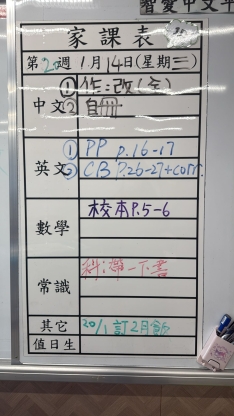 智愛中文平
家課表
第20週 1月14日(星期三)
中文 ①作:改(全)
②自冊
英文 ①PP p.16-17
②CB P.26-27+corr.
數學 校本P.5-6
常識 科:帶一下書
其它 20/1訂2月飯
值日生